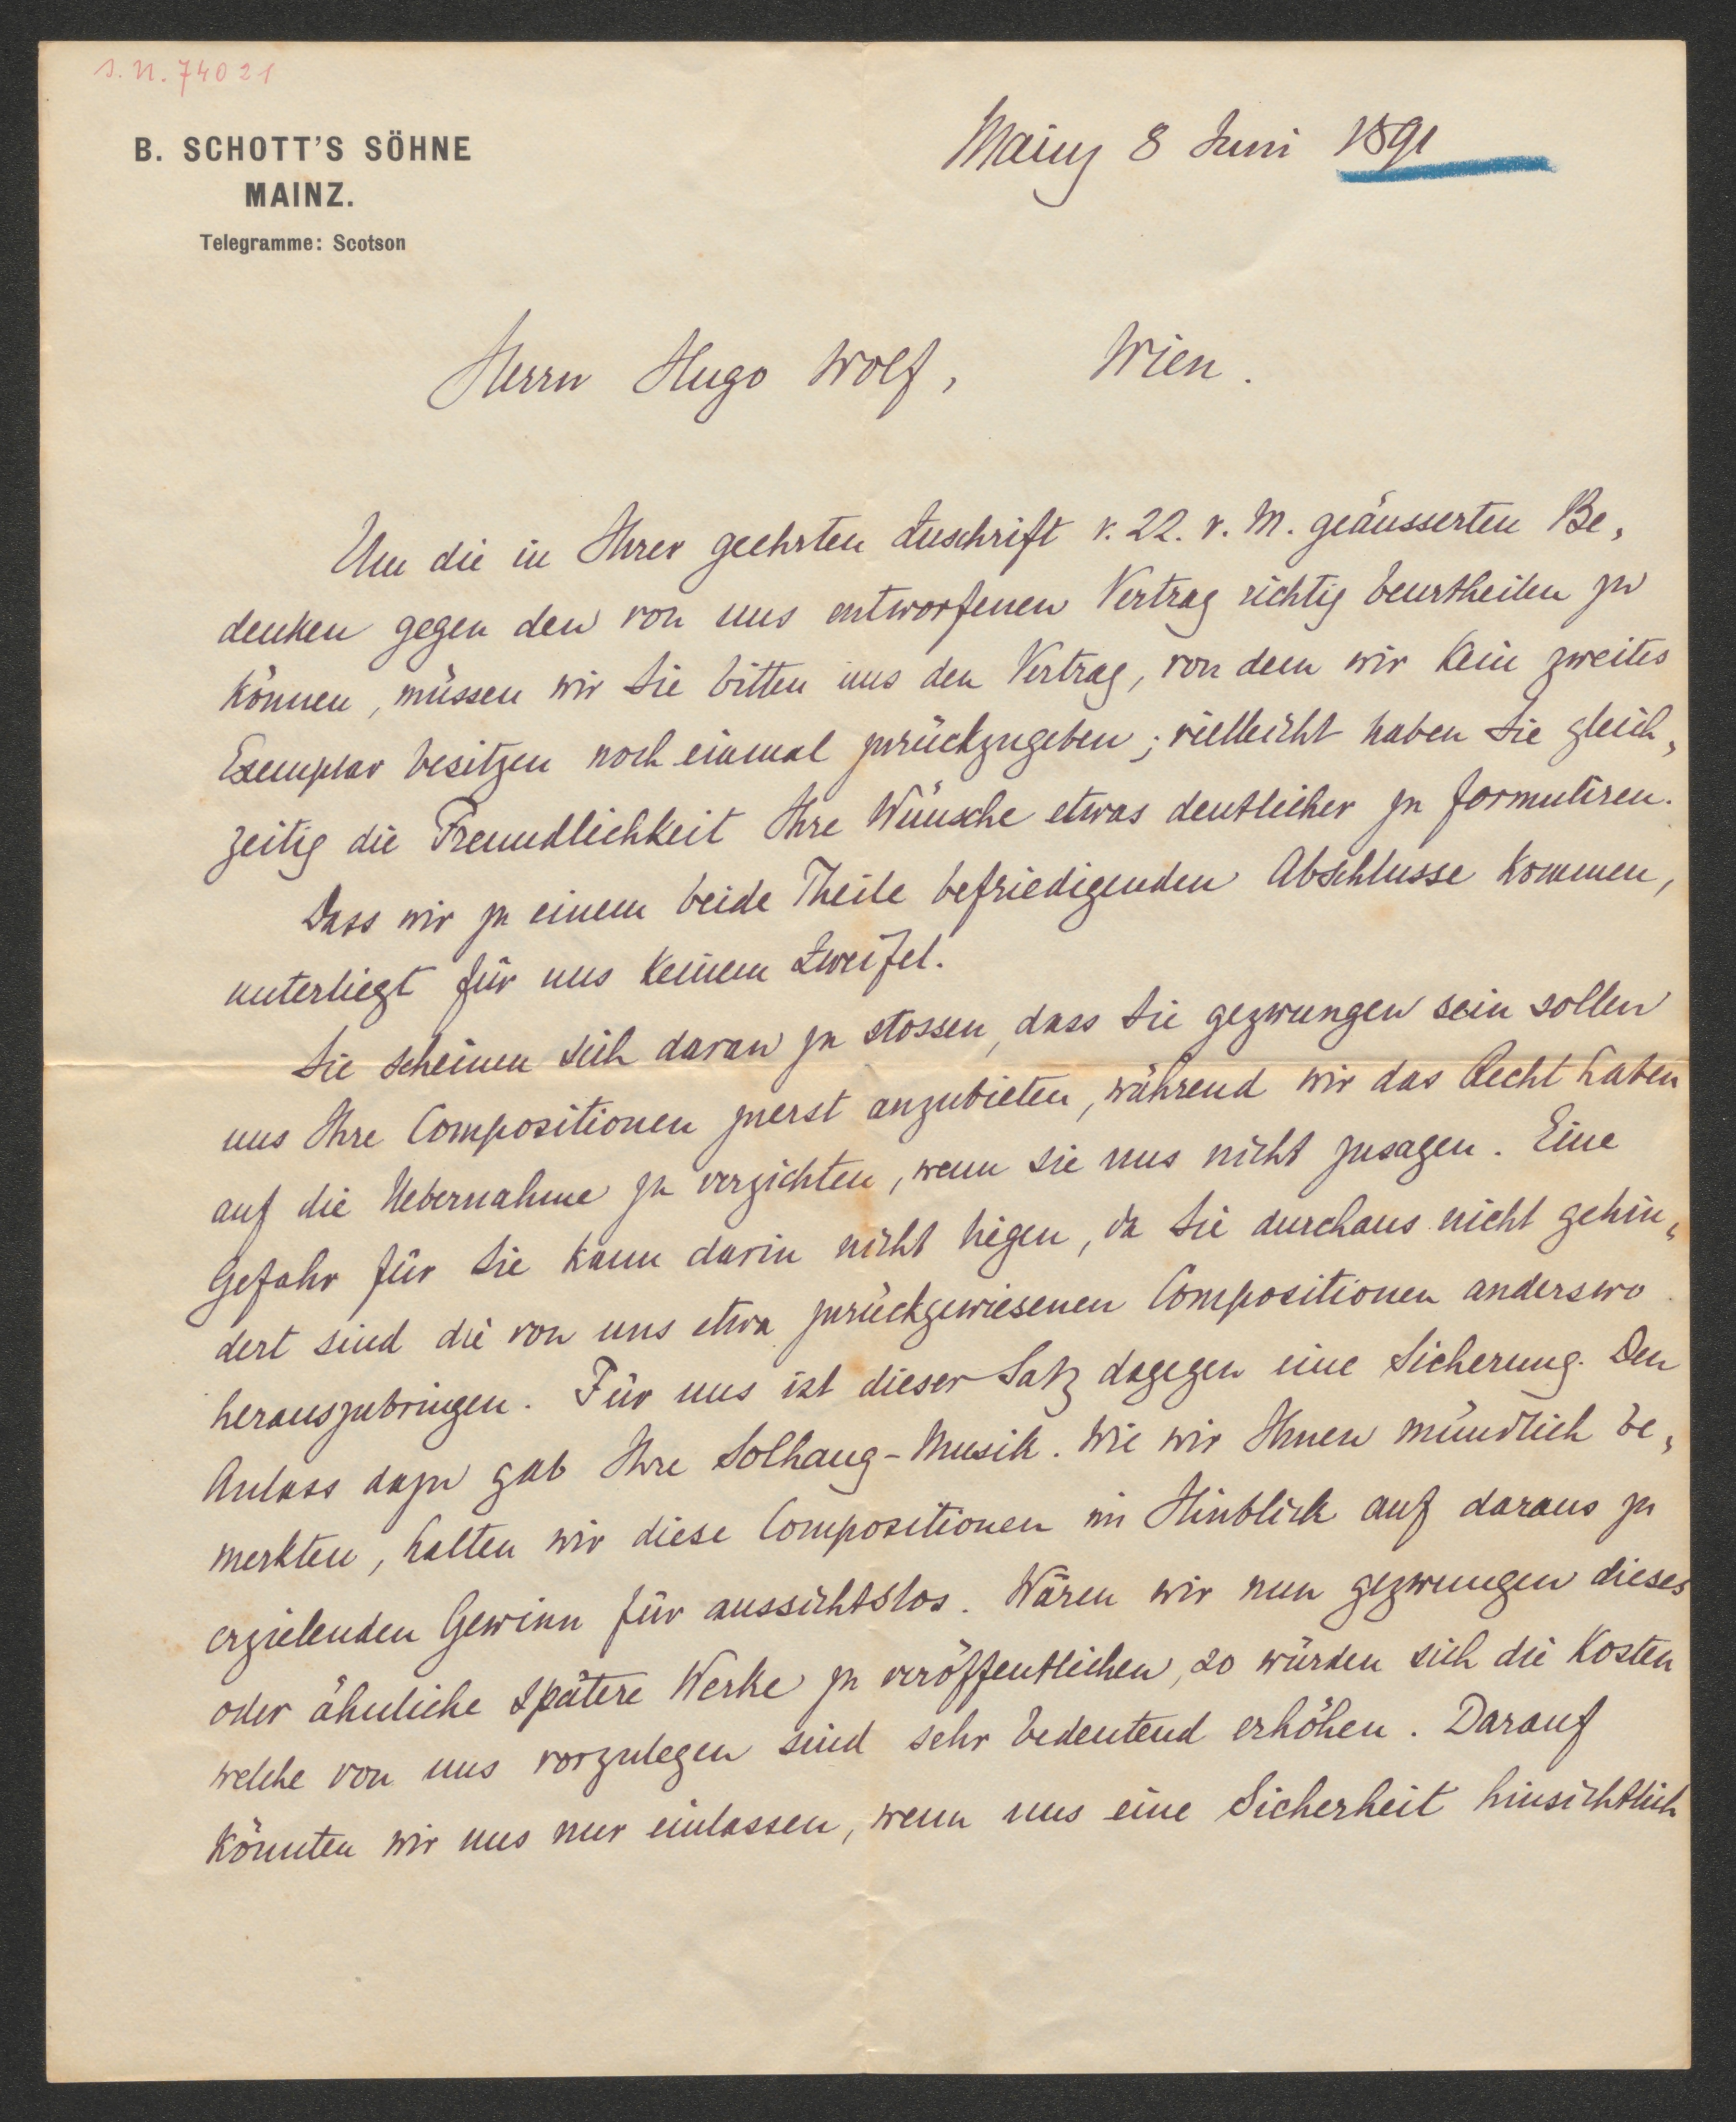 I. N. 74021
B. SCHOTT'S SÖHNE
MAINZ.
Telegramme: Scotson
Mainz 8 Juni 1891
Herrn Hugo Wolf, Wien.
Um die in Ihrer geehrten Zuschrift v. 22. v. M. geäusserten Be-
denken gegen den von uns entworfenen Vertrag richtig beurtheilen zu
können, müssen wir Sie bitten uns den Vertrag, von dem wir kein zweites
Exemplar besitzen noch einmal zurückzugeben; vielleicht haben Sie gleich-
zeitig die Freundlichkeit Ihre Wünsche etwas deutlicher zu formuliren.
Dass wir zu einem beide Theile befriedigenden Abschlusse kommen,
unterliegt für uns keinem Zweifel.
Sie scheinen sich daran zu stossen, dass Sie gezwungen sein sollen
uns Ihre Compositionen zuerst anzubieten, während wir das Recht haben
auf die Uebernahme zu verzichten, wenn sie uns nicht zusagen. Eine
Gefahr für Sie kann darin nicht liegen, da Sie durchaus nicht gehin-
dert sind die von uns etwa zurückgewiesenen Compositionen anderswo
herauszubringen. Für uns ist dieser Satz dagegen eine Sicherung. Den
Anlass dazu gab Ihre Solhaug-Musik. Wie wir Ihnen mündlich be-
merkten, halten wir diese Compositionen im Hinblick auf daraus zu
erzielenden Gewinn für aussichtslos. Wären wir nun gezwungen dieses
oder ähnliche spätere Werke zu veröffentlichen, so würden sich die Kosten
welche von uns vorzulegen sind sehr bedeutend erhöhen. Darauf
könnten wir uns nur einlassen, wenn uns eine Sicherheit hinsichtlich